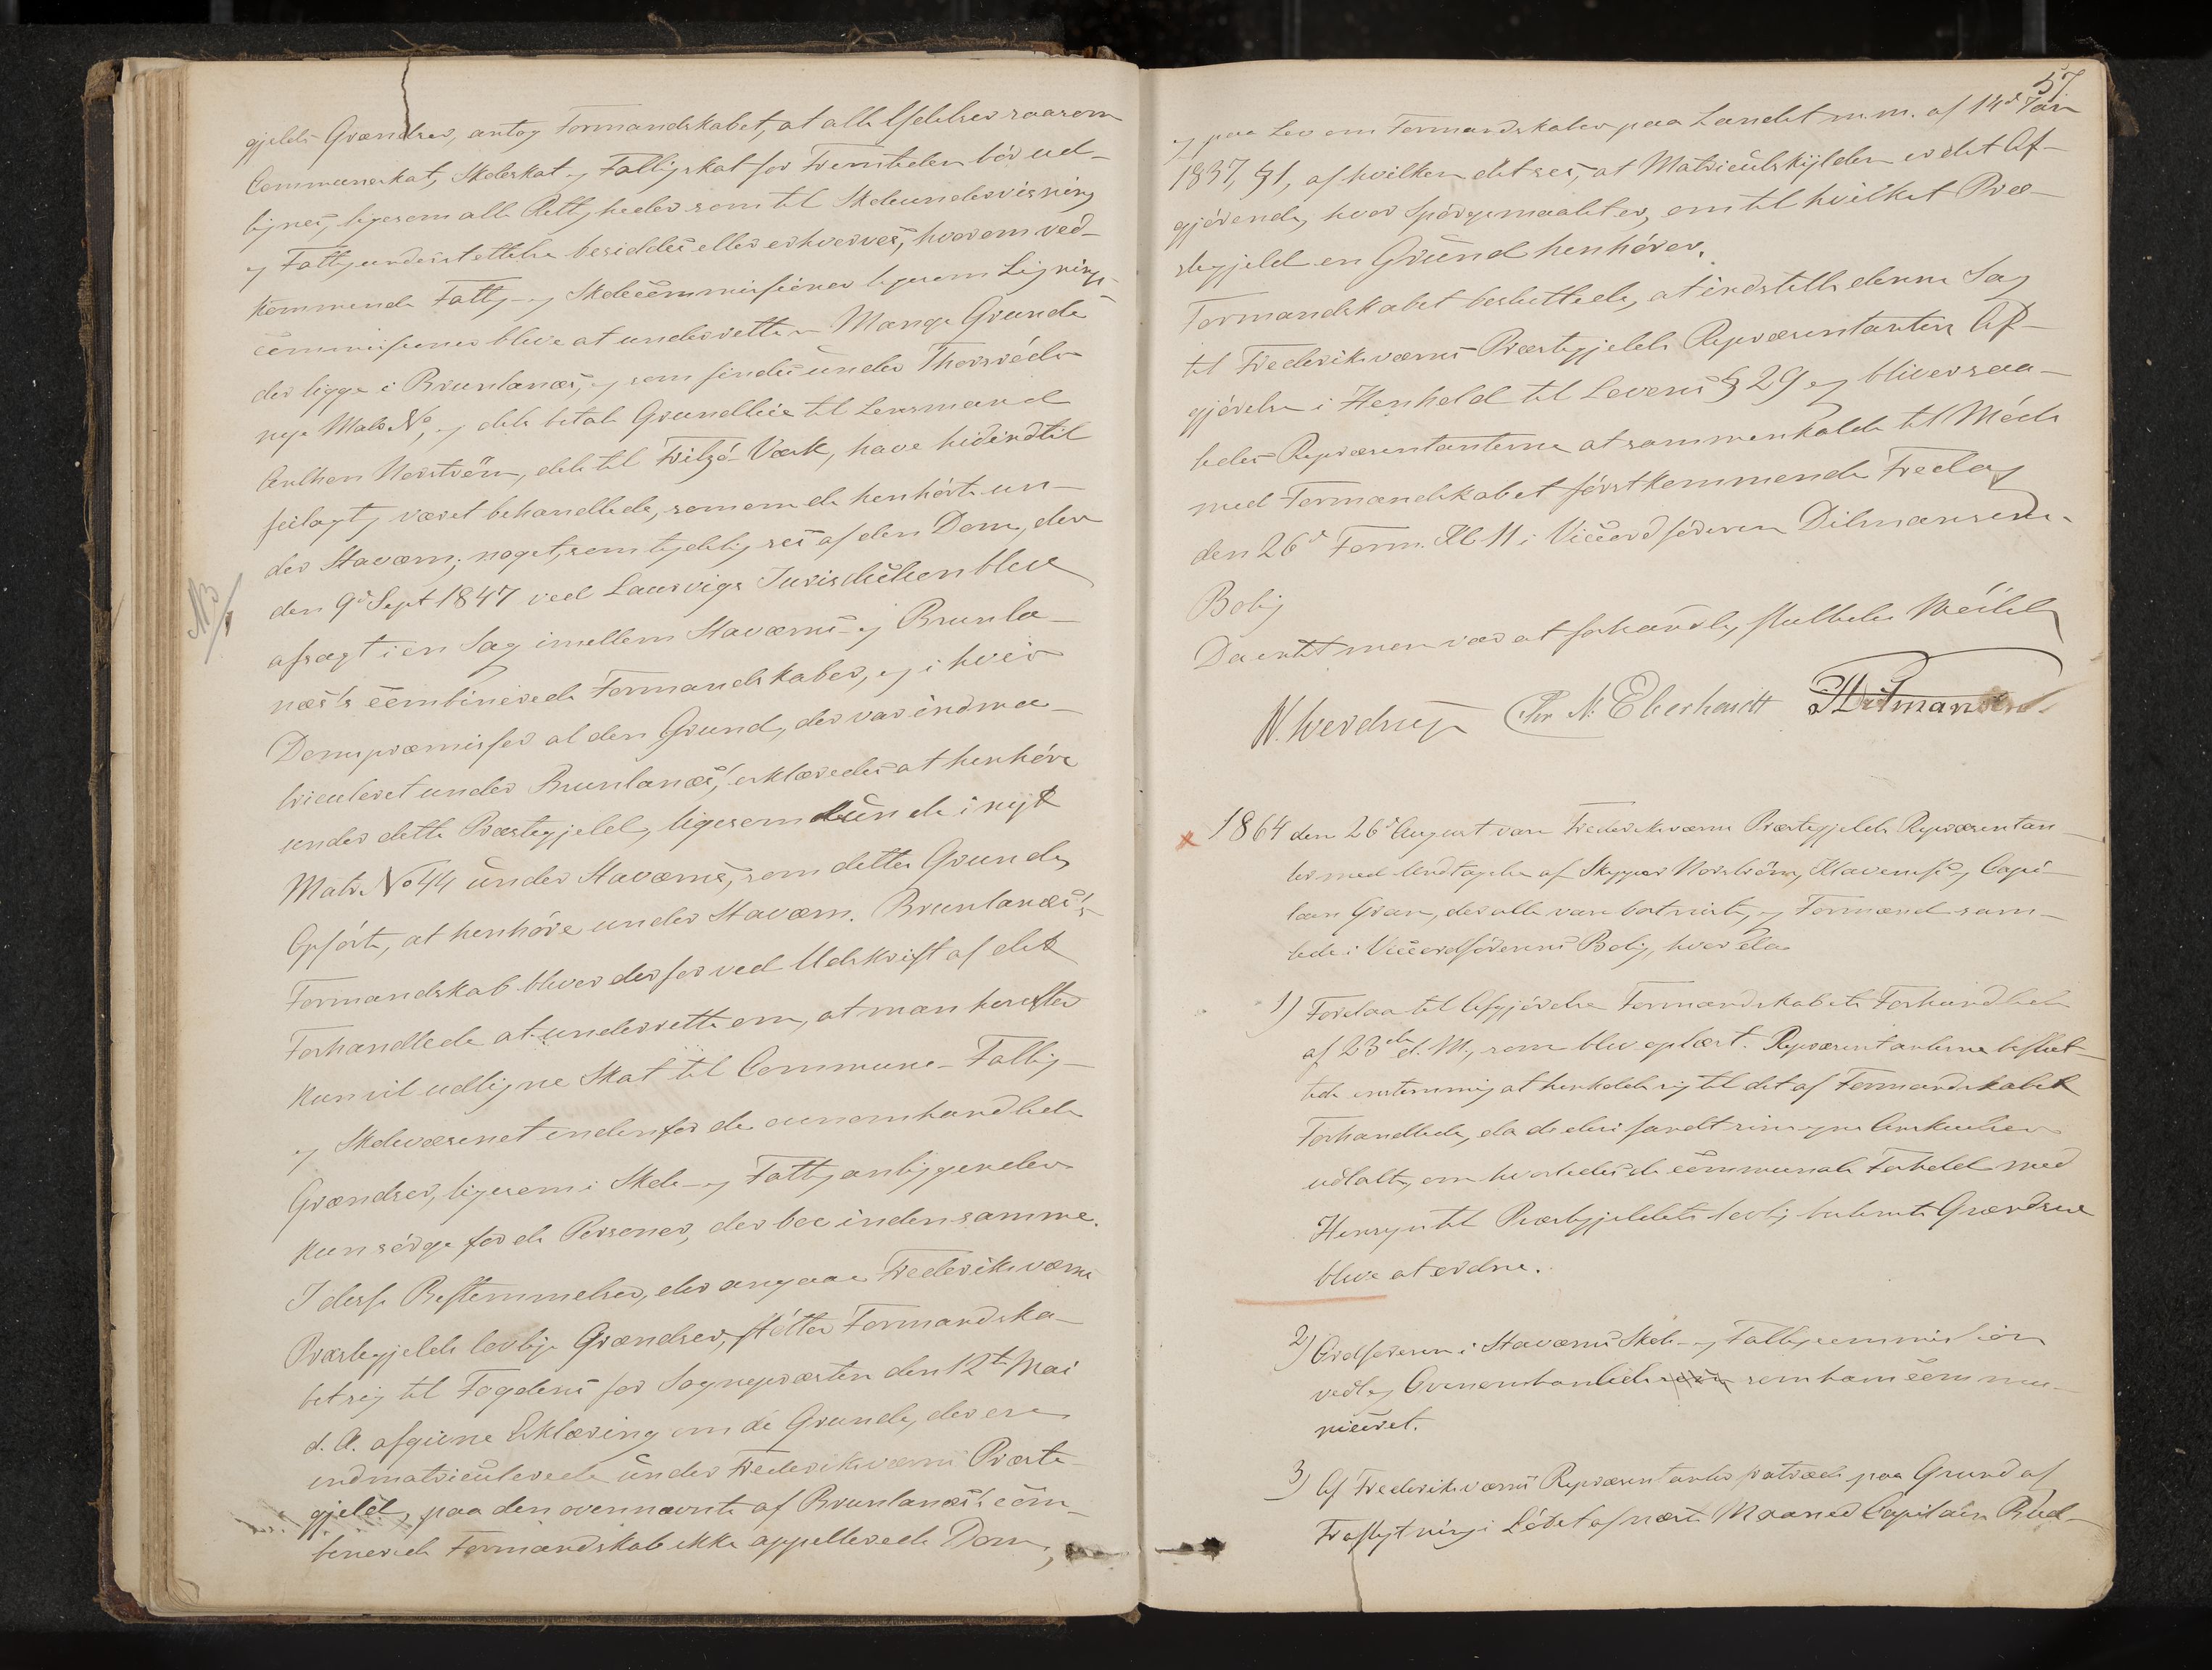 gjelds Grændser, antog Formandskabet, at alle Udelser saasom
Communeskat, Skoleskat og Fattigskat for Fremtiden bör ud-
lignes, ligesom alle Rettigheder som til Skoleundervisning
og Fattigunderstøttelse besiddes eller erhverves, hvorom ved-
kommende Fattig- og Skolecommissioner ligesom Lignings-
commissioner blive at underrette. Mange Grunde
der ligge i Brunlanæs, og som findes under Thorsröds
nye Matr No, og dels betale Grundleie til Lensmand
Nordström, dels til Fritzö-Værk, have hidindtil
feilagtig været behandlede, som om de henhörte un-
der Staværn; noget, som tydelig sees af den Dom, der
den 9d Sept 1847 ved Laurvigs Jurisdiction blev
NB
afsagt i en Sag imellem Staværns og Brunla-
næs's combinerede Formandskaber, og i hvis
Domspræmisser al den Grund, der var indma-
triculeret under Brunlanæs, erklæredes at henhöre
under dette Præstegjeld, ligesom kun de i nyt
Matr. No 44 under Staværns, som dettes Grund
Opförte, at henhöre under Staværn. Brunlanæs's
Formandskab bliver derfor ved Udskrift af det
Forhandlede at underrette om, at man herefter
kun vil udligne Skat til Commune- Fattig-
og Skolevæsenet indenfor de ovenomhandlede
Grændser, ligesom i Skole- og Fattiganliggender
kun sörge for de Personer, der boe inden samme.
I disse Bestemmelser, der angaae Frederiksværns
Præstegjelds lovlige Grændser, stötter Formandska-
bet sig til Fogdens for Sognepræsten den 12te Mai
d. A. afgivne Erklæring om de Grunde, der ere
indmatriculerede under Frederiksværns Præste-
gjeld, paa den ovennævnte af Brunlanæs's com-
binerede Formandskab ikke appellerede Dom,
57
og paa Lov om Formandskaber paa Landet m.m. af 14d Jan
1837, § 1, af hvilken det sees, at Matriculskylden er det Af-
gjörende, hvor Spörgsmaalet er, om til hvilket Præ-
stegjeld en Grund henhörer.
Formandskabet besluttede, at indstille denne Sag
til Frederiksværns Præstegjelds Repræsentanters Af-
gjörelse i Henhold til Lovens § 29 og bliver saa-
ledes Repræsentanterne at sammenkalde til Möde
med Formandskabet förstkommende Fredag
den 26d Form. Kl 11 i Viceordföreren Ditmansens
Bolig
Da intet mere var at forhandle, sluttedes Mödet
N. Wverdrup Chr N. Eberhardt Ditmansen
1864 den 26d August vare Frederiksværns Præstegjelds Repræsentan-
ter med Undtagelse af Skipper Norström, Klavenes og Capi-
tain Gran, der alle vare bortreiste, og Formænd sam-
lede i Viceordförerens Bolig, hvor da
1) Forelaa til Afgjörelse Formandskabets Forhandlede
af 23de d. M., som blev oplæst. Repræsentanterne beslut-
tede enstemmig at henholde sig til det af Formandskabet
Forhandlede, da de deri fandt sine egne Anskuelser
udtalte, om hvorledes de communale Forhold med
Hensyn til Præstegjeldets lovlig bestemte Grændser
blive at ordne.
2) Ordföreren i Staværns Skole- og Fattigcommission
vedtog Ovenomhandlede som ham commu-
niceret.
3) Af Frederiksværns Repræsentanter fratræde paa Grund af
Fraflytning i Löbet af næste Maaned Capitain Rud-